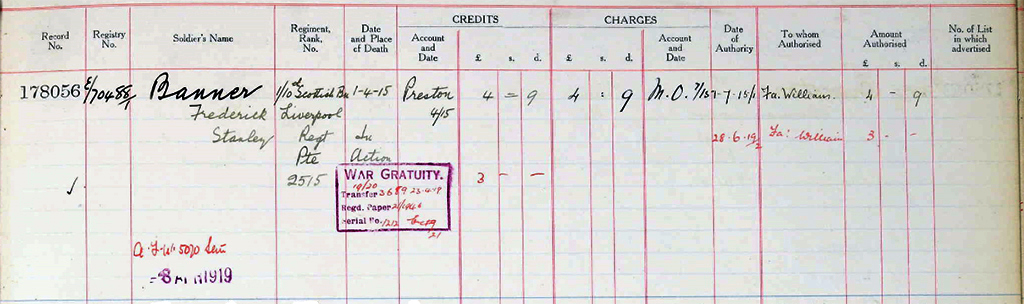 CREDITS CHARGES
Record No. Registry No. Soldier's Name Regiment, Rank, No. Date and Place of Death Account and Date £ s. d. £ s. d. Account and Date Date of Authority To whom Authorised Amount Authorised £ s. d. No. of List in which advertised
178056 E/70488/1 Banner 1/10th Scottish Bn 1-4-15 Preston 4 = 9 4 : 9 M.O. 7/15 Fa. William 4 - 9
Frederick Liverpool 4/15
Stanley Regt In 28-6-19 Fa: William 3 - -
Pte Action
2515 WAR GRATUITY. 3 - -
19/20
Transfer 3689
Regd. Paper
Serial No.
21
A.F.W. 5070 Sent
1919